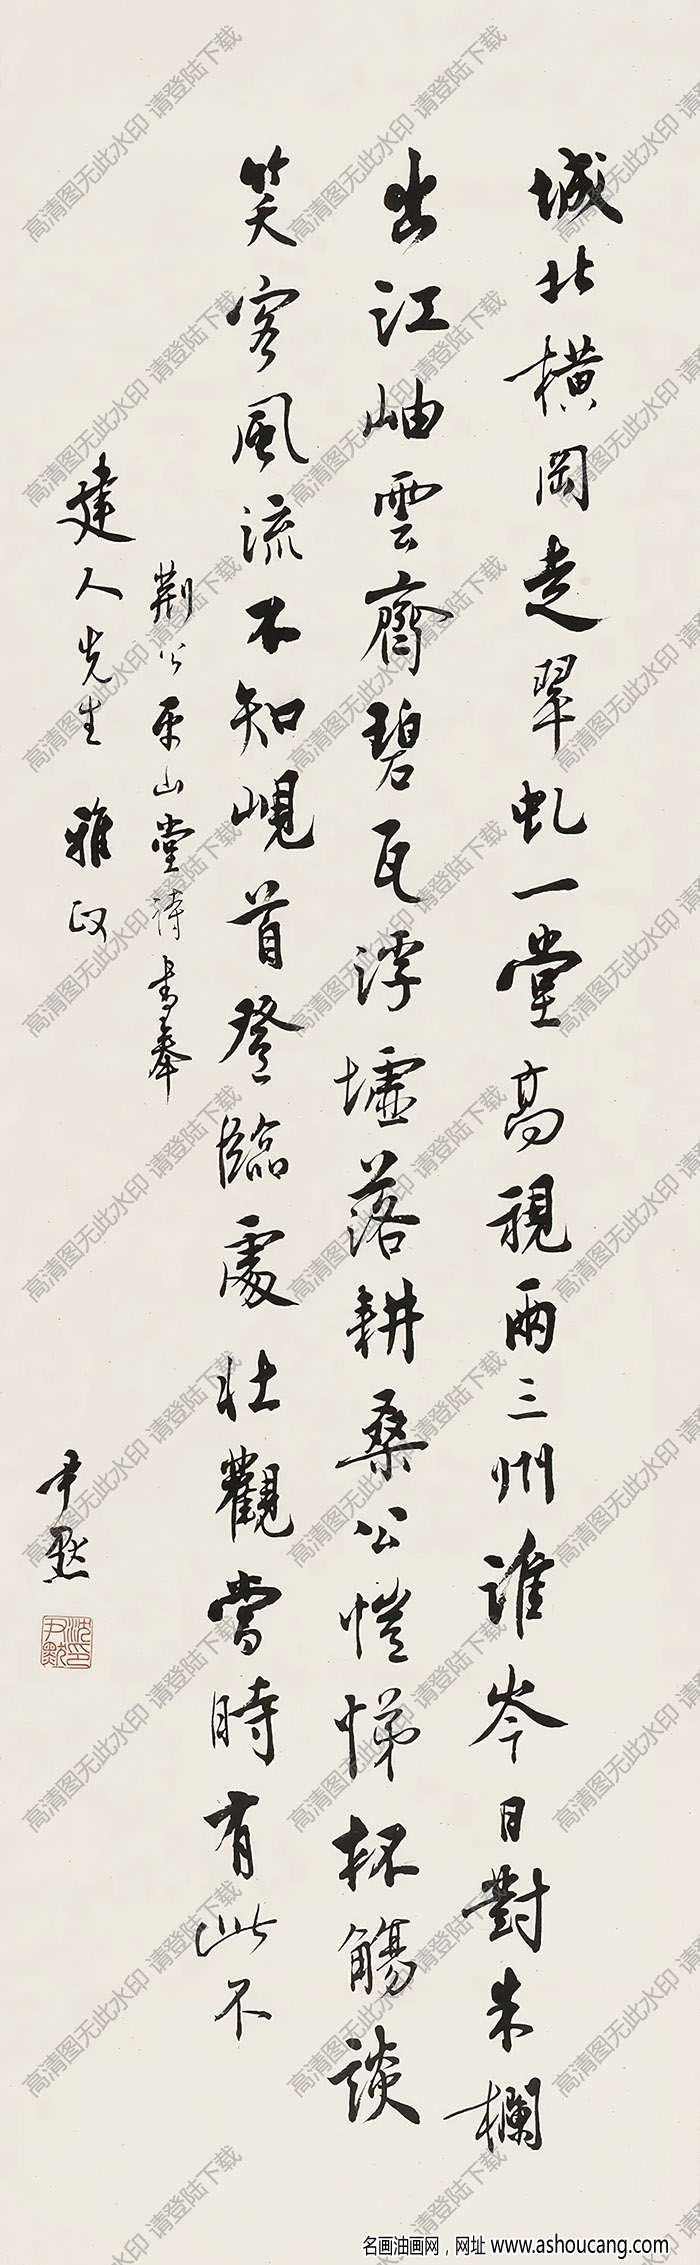 城北橫岡走翠虬一堂高視兩三州淮岑日對朱欄
出江岫雲齊碧瓦浮墟落耕桑公愷悌杯觴談
笑客風流不知峴首登臨處壯觀當時有此不
荆公平山堂詩書奉
建人先生雅政
尹默
沈印尹默
高清图无此水印 请登陆下载
名画油画网，网址 www.ashoucang.com